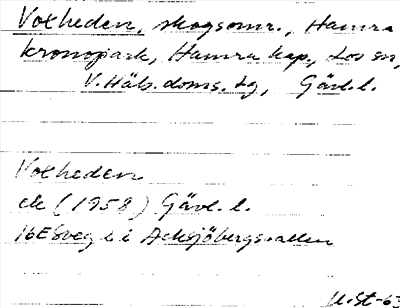 Voxheden, skogsomr., Hamra
kronopark, Hamra kap., Los sn,
V. Häls. doms. tg, Gävl. l.
Voxheden
ek (1958) Gävl. l.
16E5veg i Acksjöbergsvallen
U.St-63